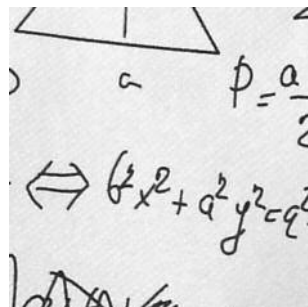 a
P = a
⇔ b²x² + a²y² = a²